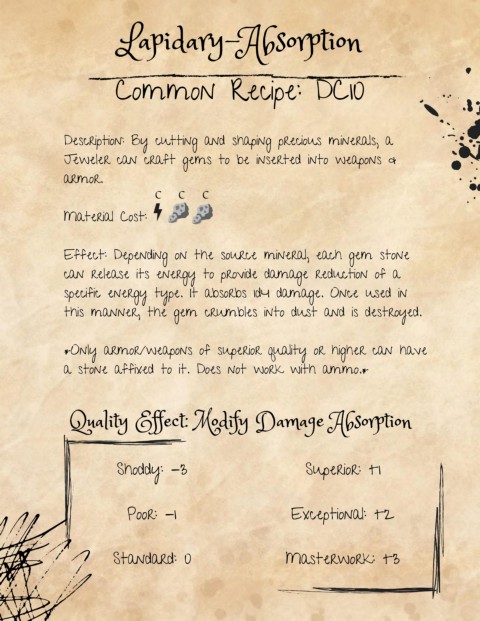 Lapidary-Absorption
Common Recipe: DC10
Description: By cutting and shaping precious minerals, a
Jeweler can craft gems to be inserted into weapons &
armor.
C C C
Material Cost:
Effect: Depending on the source mineral, each gem stone
can release its energy to provide damage reduction of a
specific energy type. It absorbs 1d4 damage. Once used in
this manner, the gem crumbles into dust and is destroyed.
*Only armor/weapons of superior quality or higher can have
a stone affixed to it. Does not work with ammo.*
Quality Effect: Modify Damage Absorption
Shoddy: -3 Superior: +1
Poor: -1 Exceptional: +2
Standard: 0 Masterwork: +3